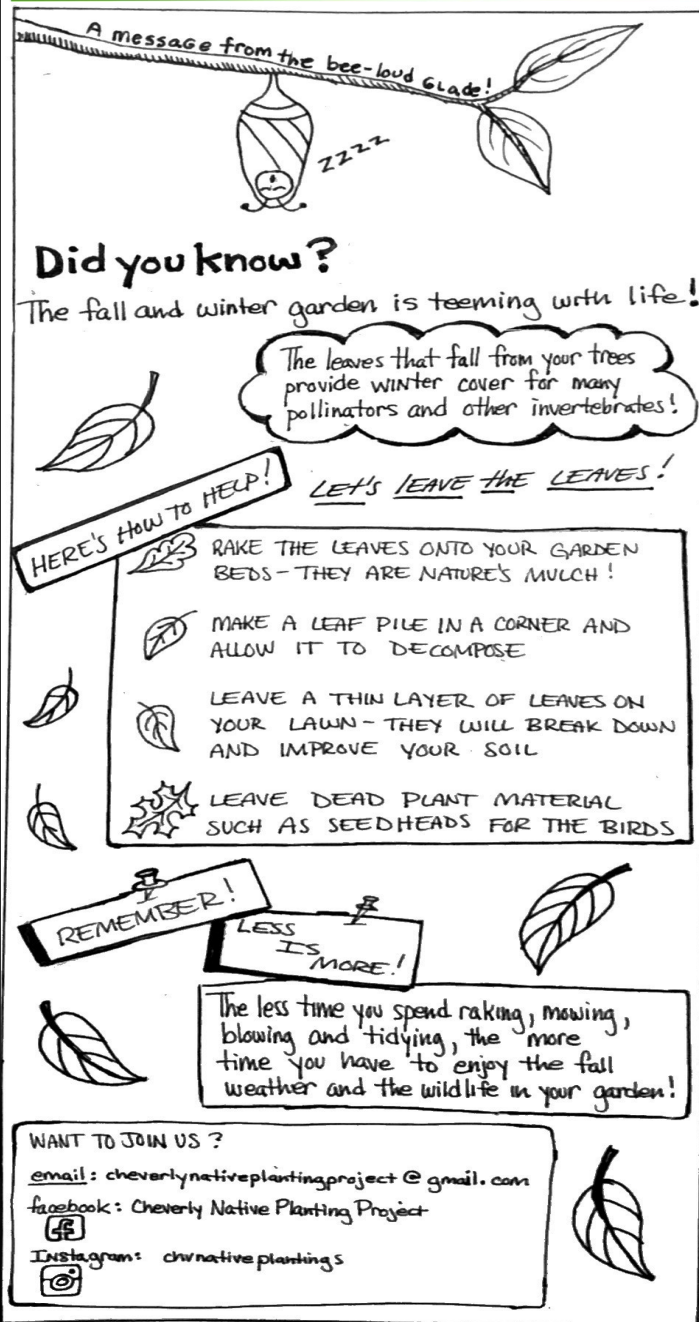 A message from the bee-loud Glade!
zzzz
Did you know?
The fall and winter garden is teeming with life!
The leaves that fall from your trees
provide winter cover for many
pollinators and other invertebrates!
HERE'S HOW TO HELP!
LET'S LEAVE THE LEAVES!
RAKE THE LEAVES ONTO YOUR GARDEN
BEDS - THEY ARE NATURE'S MULCH!
MAKE A LEAF PILE IN A CORNER AND
ALLOW IT TO DECOMPOSE
LEAVE A THIN LAYER OF LEAVES ON
YOUR LAWN - THEY WILL BREAK DOWN
AND IMPROVE YOUR SOIL
LEAVE DEAD PLANT MATERIAL
SUCH AS SEEDHEADS FOR THE BIRDS
REMEMBER!
LESS
IS
MORE!
The less time you spend raking, mowing,
blowing and tidying, the more
time you have to enjoy the fall
weather and the wildlife in your garden!
WANT TO JOIN US?
email: cheverlynativeplantingproject@gmail.com
facebook: Cheverly Native Planting Project
Instagram: chvnativeplantings